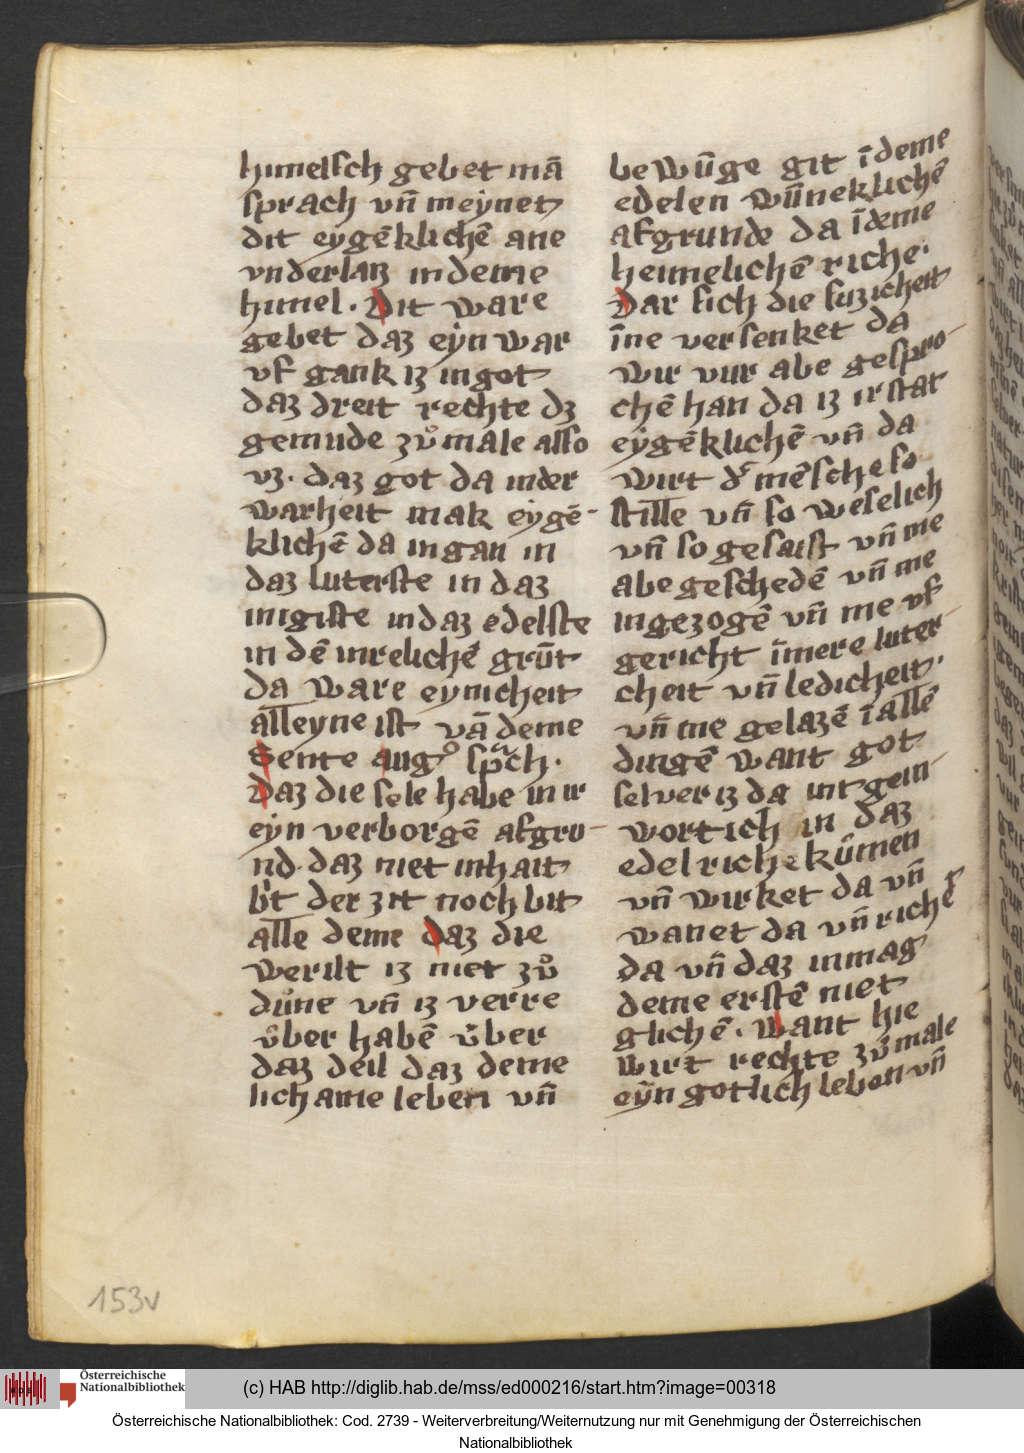 himelsch gebet mā
sprach vn̄ meynet
dit eygēklichē ane
vnderlaz in deme
himel. Dit ware
gebet daz eyn war
vf gank iz in got
daz dreit rechte dz
gemude zuͦmale also
vz. daz got da in der
warheit mak eygē-
klichē da in gan in
daz luterste in daz
inigiste in daz edelste
in dē inrelichē grūt
da ware eynicheit
alleyne ist vā deme
Sente augꝰ sprͣch.
Daz die sele habe in ir
eyn verborgē afgru-
nd. daz niet inhait
bit der zit noch bit
alle deme daz die
werilt iz niet zuͦ
duͦne vn̄ iz verre
uͦber habē uͦber
daz deil daz deme
lichame leben vn̄
bewūge git ī deme
edelen wūneklichē
afgrunde da ī deme
heimelichē riche.
Dar sich die suzicheit
īne versenket da
wir vur abe gespro-
chē han da iz ir stat
eygēklichē vn̄ da
wirt dˢ mēsche so
stille vn̄ so weselich
vn̄ so gesaist vn̄ me
abegeschedē vn̄ me
ingezogē vn̄ me vf
gericht īmere luter-
cheit vn̄ ledicheit.
vn̄ me gelazē ī allē
dingē want got
selver iz da intgein-
wortich in daz
edel riche kūmen
vn̄ wirket da vn̄
wanet da vn̄ richēˢ
da vn̄ daz inmag
deme erstē niet
glichē. want hie
wirt rechte zuͦmale
eyn gotlich leben vn̄
153v
Österreichische
Nationalbibliothek
(c) HAB http://diglib.hab.de/mss/ed000216/start.htm?image=00318
Österreichische Nationalbibliothek: Cod. 2739 - Weiterverbreitung/Weiternutzung nur mit Genehmigung der Österreichischen
Nationalbibliothek